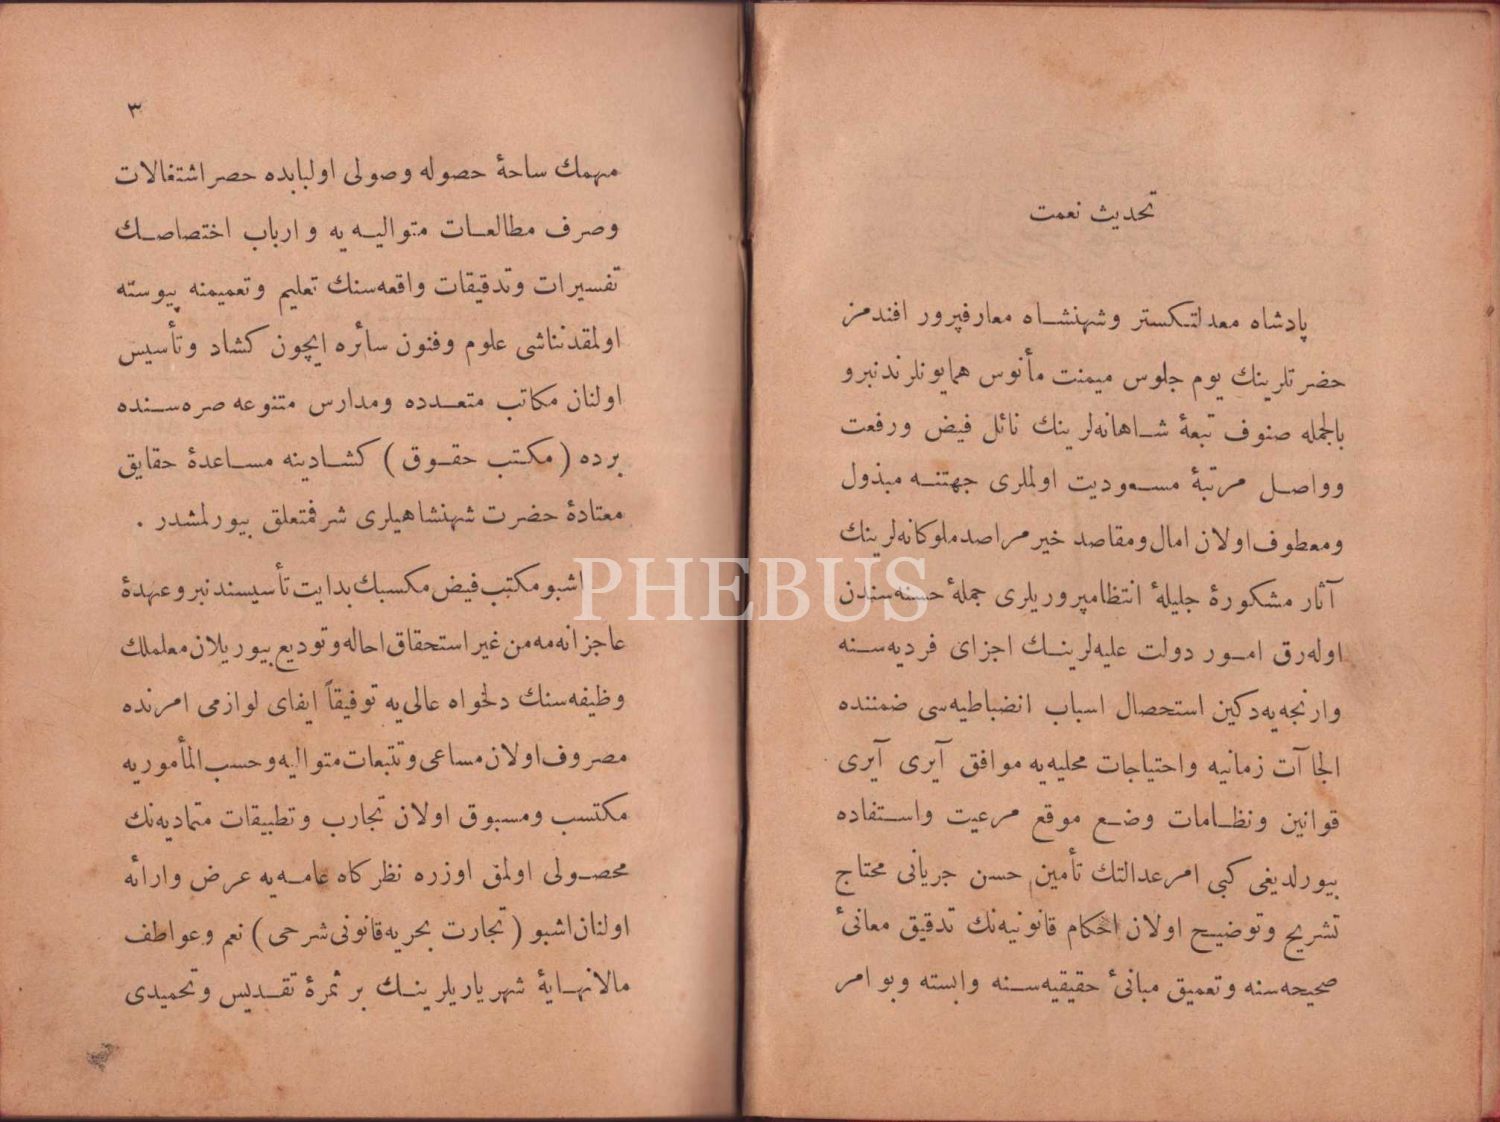 تحدیث نعمت
پادشاه معدلتـكستر وشهنشـاه معارفپرور افندمز
حضرتلرینك یوم جلوس میمنت مأنوس همایونلرندنبرو
بالجمله صنوف تبعهٔ شاهانه‌لرینك نائل فیض ورفعت
وواصل مرتبهٔ مسعودیت اولملری جهتنه مبذول
ومعطوف اولان امال ومقاصد خیر مراصد ملوكانه‌لرینك
آثار مشكورهٔ جلیلهٔ انتظامپروریلری جملهٔ حسنه‌سندن
اوله‌رق امور دولت علیه‌لرینك اجزای فردیه‌سنه
وارنجه‌یه‌دكین استحصال اسباب انضباطیه‌سی ضمننده
الجاآت زمانیه واحتیاجات محلیه‌یه موافق آیری آیری
قوانین ونظامات وضع موقع مرعیت واستفاده
بیورلدیغی كبی امر عدالتك تأمین حسن جریانی محتاج
تشریح وتوضیح اولان احكام قانونیه‌نك تدقیق معانیٔ
صحیحه‌سنه وتعمیق مبانیٔ حقیقیه‌سنه وابسته وبو امر
٣
مهمك ساحهٔ حصوله وصولی اولبابده حصر اشتغالات
وصرف مطالعات متوالیه‌یه وارباب اختصاصك
تفسیرات وتدقیقات واقعه‌سنك تعلیم وتعمیمنه پیوسته
اولمقدنناشی علوم وفنون سائره ایچون كشاد وتأسیس
اولنان مكاتب متعدده ومدارس متنوعه صره‌سنده
برده ( مكتب حقوق ) كشادینه مساعدهٔ حقایق
معتادهٔ حضرت شهنشاهیلری شرفمتعلق بیورلمشدر .
اشبو مكتب فیض مكسبك بدایت تأسیسندنبرو عهدهٔ
عاجزانه‌مه من غیر استحقاق احاله وتودیع بیوریلان معلملك
وظیفه‌سنك دلخواه عالی‌یه توفیقاً ایفای لوازمی امرنده
مصروف اولان مساعی وتتبعات متوالیه وحسب المأموریه
مكتسب ومسبوق اولان تجارب وتطبیقات متمادیه‌نك
محصولی اولمق اوزره نظركاه عامه‌یه عرض وارائه
اولنان اشبو ( تجارت بحریه قانونی شرحی ) نعم وعواطف
مالانهایهٔ شهریاریلرینك بر ثمرهٔ تقدیس وتحمیدی
PHEBUS